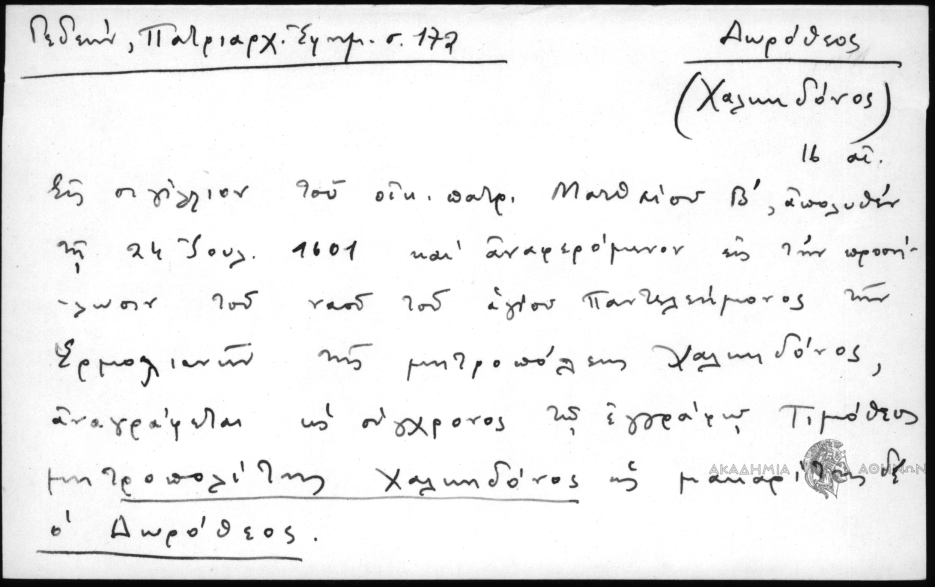 Γεδεών, Πατριαρχ. Ἐφημ. σ. 172
Δωρόθεος
(Χαλκηδόνος)
16 αἰ.
Εἰς σιγίλλιον τοῦ οἰκ. πατρ. Ματθαίου Β', ἀπολυθὲν
τῇ 24 Ἰουλ. 1601 καὶ ἀναφερόμενον εἰς τὴν προσή-
λωσιν τοῦ ναοῦ τοῦ ἁγίου Παντελεήμονος τὴν
τῆς μητροπόλεως Χαλκηδόνος,
ἀναγράφεται ὡς σύγχρονος τῷ ἐγγράφῳ Τιμόθεος
μητροπολίτης Χαλκηδόνος ὡς μακαρίτης δὲ
ὁ Δωρόθεος.
ΑΚΑΔΗΜΙΑ ΑΘΗΝΩΝ